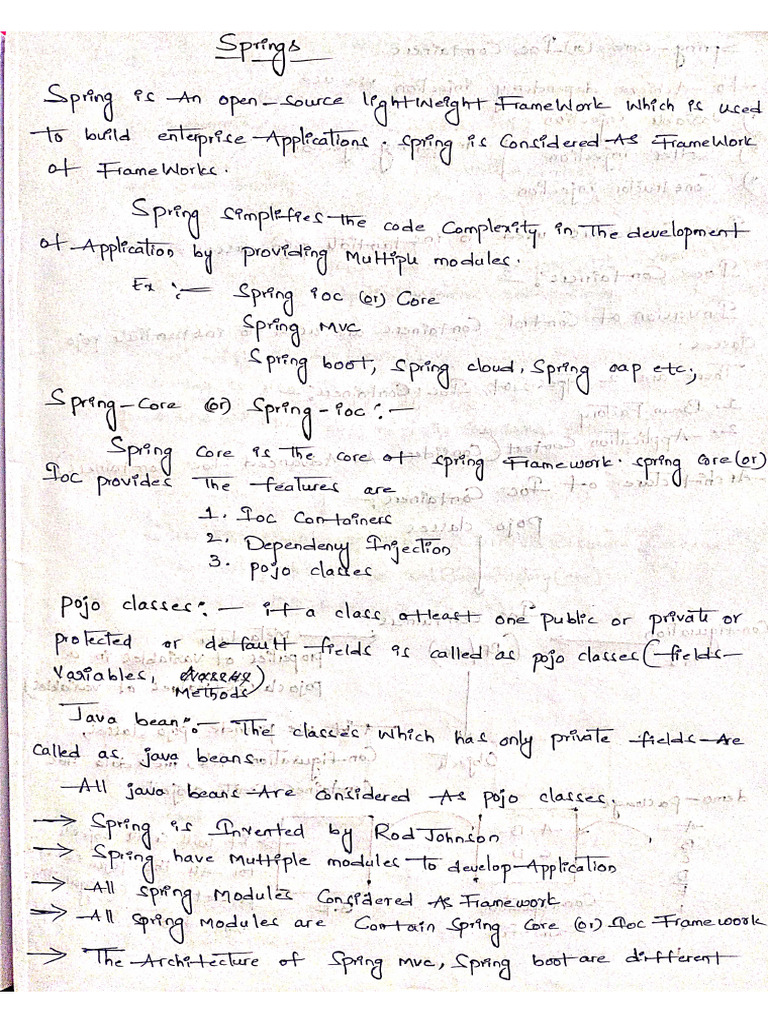 Springs
Spring is An open-source lightweight FrameWork which is used
to build enterprise Applications. spring is Considered As FrameWork
of FrameWorks.
Spring simplifies the code Complexity in The development
of Application by providing Multiple modules.
Ex :- Spring ioc (or) Core
Spring MVC
Spring boot, Spring cloud, Spring oap etc;
Spring-Core (or) Spring-ioc :-
Spring Core is the core of spring Framework. spring core (or)
Ioc provides The features are
1. Ioc Containers
2. Dependency Injection
3. pojo classes
pojo classes :- if a class atleast one public or private or
protected or default fields is called as pojo classes (fields-
variables,
Methods)
Java bean :- The classes which has only private fields Are
called as java beans.
All java beans Are considered As pojo classes.
→ Spring is Invented by Rod Johnson
→ Spring have Multiple modules to develop Application
→ All spring Modules Considered As Framework
→ All spring modules are Contain Spring Core (or) Ioc Framework
→ The Architecture of Spring mvc, Spring boot are different